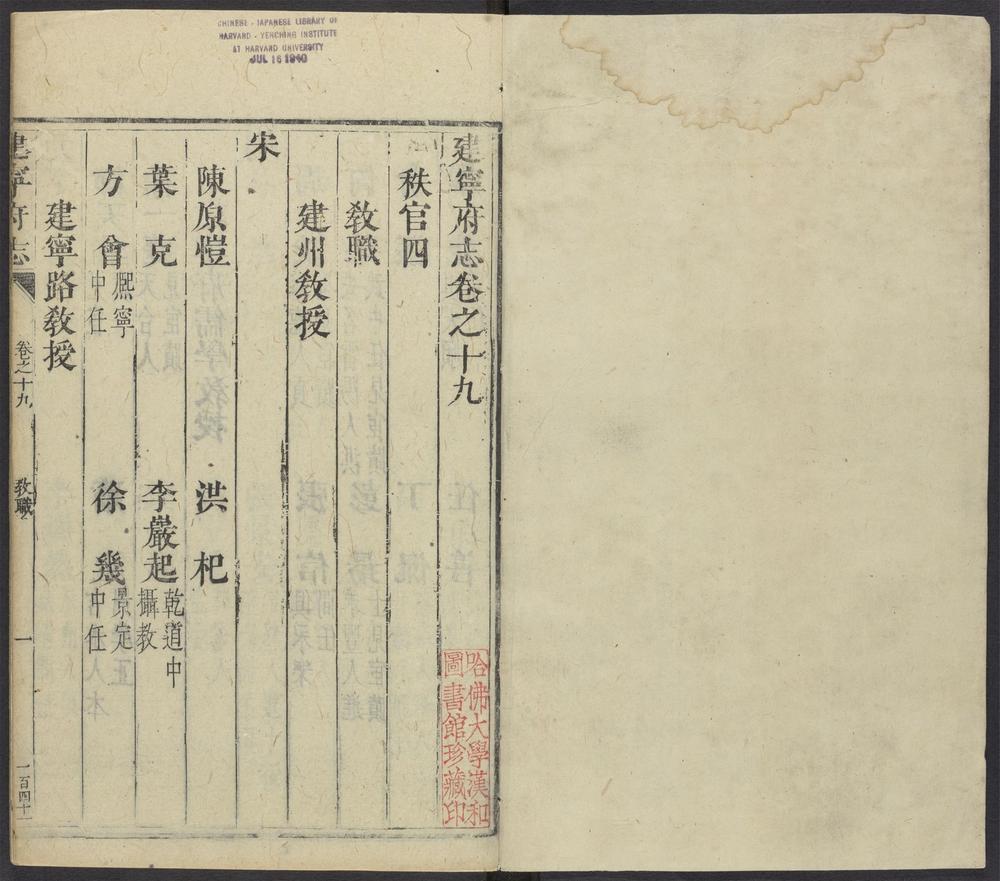 CHINESE - JAPANESE LIBRARY OF
HARVARD - YENCHING INSTITUTE
AT HARVARD UNIVERSITY
JUL 16 1940
建寧府志卷之十九
秩官四
教職
建州教授
宋
陳原愷 洪杞
葉克 李嚴起 乾道中攝教
方會 熈寧中任 徐幾 景定中任
建寧路教授
建寧府志 卷之十九 教職 一
哈佛大學漢和
圖書館珍藏印